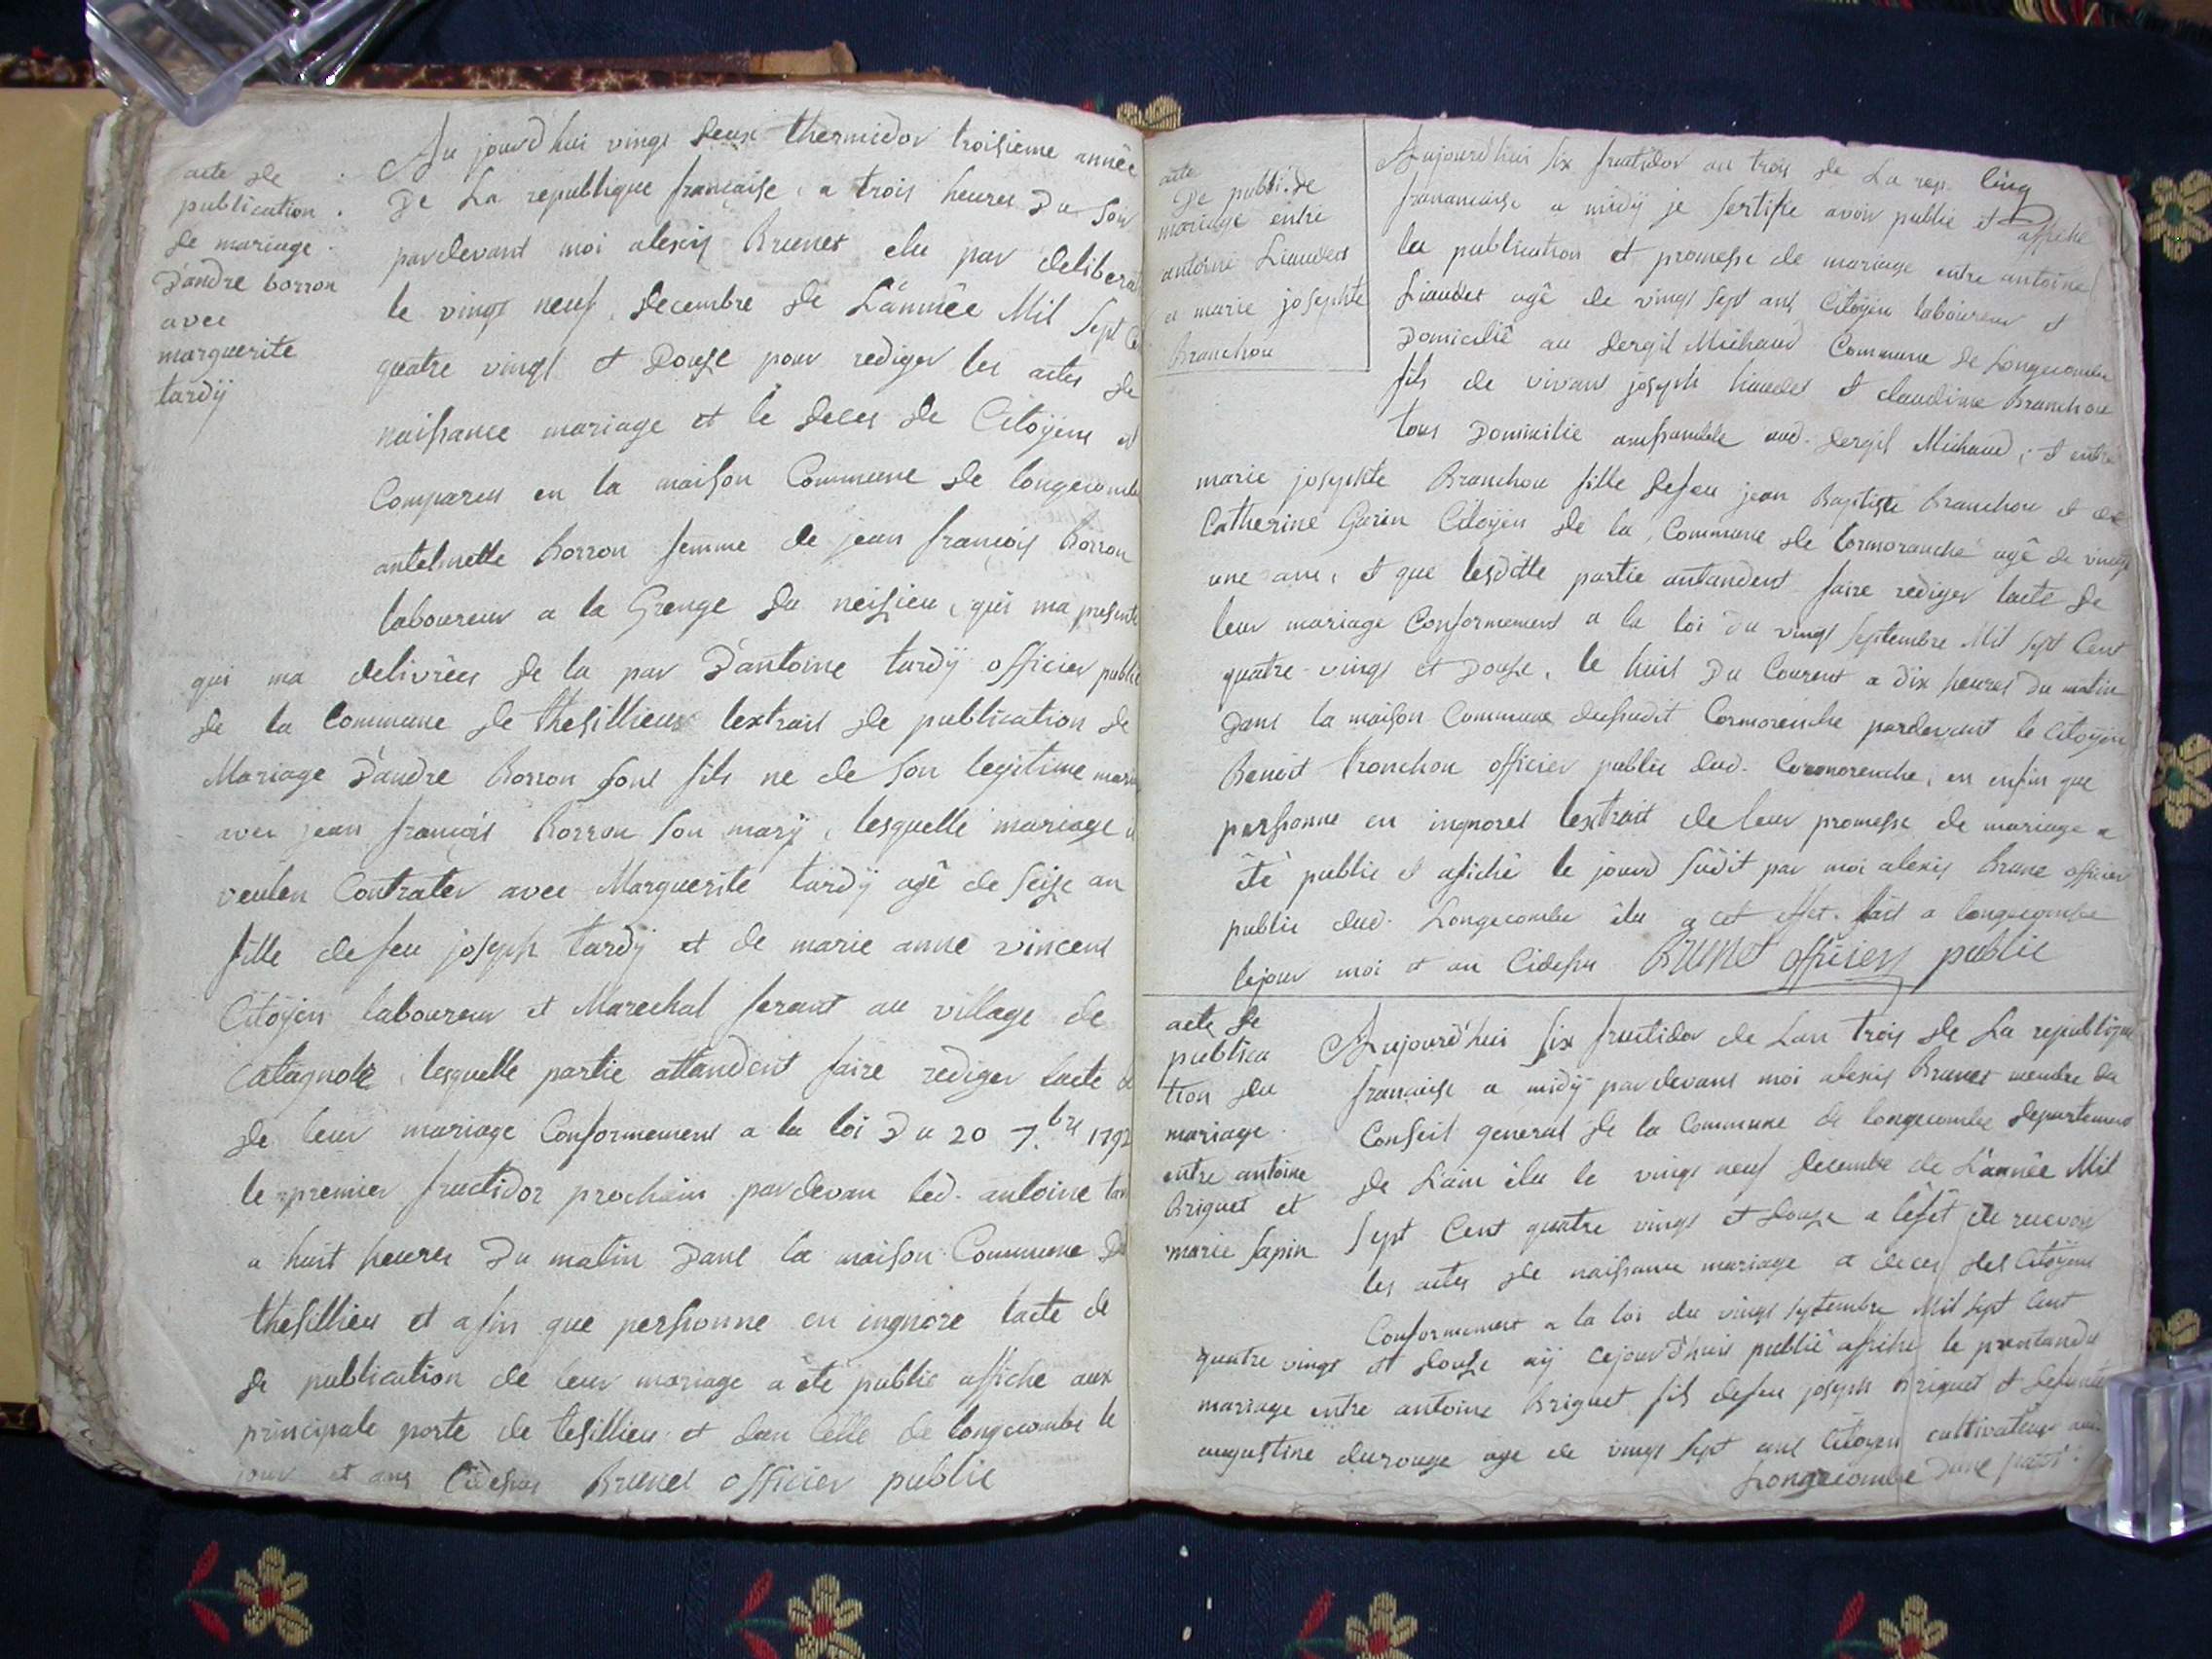 acte de
publication
de mariage
D'andre borron
avec
marguerite
tardÿ
Au jourd'hui vingt deux thermidor troisieme année
De La republique française, a trois heures Du soir
pardevant moi alexis Brunet elu par delibera
le vingt neuf decembre de L'année Mil Sept
quatre vingt et Douse pour rediger les actes de
naissance mariage et le deces de Citoÿens
Comparus en la maison Commune de longecombe
antelmette Borron femme de jean françois Borron
laboureur a la Grenge du neisieu, qui ma presente
qui ma delivrées de la par D'antoine tardÿ officier public
de la Commune de thesillieux lextrait de publication de
Mariage D'andre Borron sons fils ne de son legitime
avec jean françois Borron son marÿ, lesquelle mariage
veulen Contrater avec Marguerite tardÿ agé de seise an
fille defeu joseph tardÿ et de marie anne vincent
Citoÿen laboureur et Marechal ferant au village de
Catagnole, lesquelle partie attandent faire rediger lacte
de leur mariage Conformement a la loi Du 20 7.bre 1792
le premier fructidor prochain pardevan led. antoine
a huit heures Du matin Dans la maison Commune
thesillieu et afin que personne en ingnore lacte de
de publication de leur mariage a été public affiche aux
principale porte de tesillieu et dan celle de longecombe le
jour et ans Cidessus Brunet officier public
acte
De publi. de
mariage entre
antoine Liaudet
a marie josephte
Branchou
Aujourd'hui six fructidor an trois de La rep. Cinq
franancaise a midÿ je sertifie avoir public et affiche
la publication et promesse de mariage entre antoine
Liaudet agé de vingt sept ans Citoÿen laboureur et
Domicilié au dergit Michaud Commune de Longecombe
fils de vivant joseph liaudet et claudine Branchou
tous Domicilie ansfamble aud. dergit Michaud, et entre
marie josephte Branchou fille defeu jean Baptiste Branchou et de
Catherine Garin Citoÿen de la Commune de Cormoranche agé de vingt
une ans, et que lesditte partie antandent faire rediger lacte de
leur mariage Conformement a la loi du vingt septembre Mil sept Cent
quatre-vingt et Douse, le huit Du Courent a dix heures Du matin
Dans la maison Commune dusfudit Cormorenche pardevant le Citoÿen
Benoit tronchon officier public dud. Cormorenche, en enfin que
personne en ingnoret lextrait de leur promesse de mariage a
été public et afiché le jourd sudit par moi alexis Brune officier
public dud. Longecombe élu a cet effet. fait a longecombe
lejour moi et an Cidessu Brunet officier public
acte de
publica
tion du
mariage
entre antoine
Briguet et
marie sapin
Aujourd'hui six fructidor de Lan trois de La republique
française a midÿ pardevant moi alexis Brunet membre du
Conseil general de la Commune de longecombe departement
de L'ain élu le vingt neuf decembre de L'année Mil
Sept Cent quatre vingt et douze a l'éfét de recevoir
les actes de naissance mariage a deces des Citoÿens
Conformement a la loi du vingt septembre Mil sept Cent
quatre vingt et douse aÿ cejourd'hui publié affiche le prentandu
mariage entre antoine Briguet fils defeu joseph Briguet et defunte
augustine durouge age de vingt sept ans Citoyen cultivateur aud.
Longecombe Dune part.